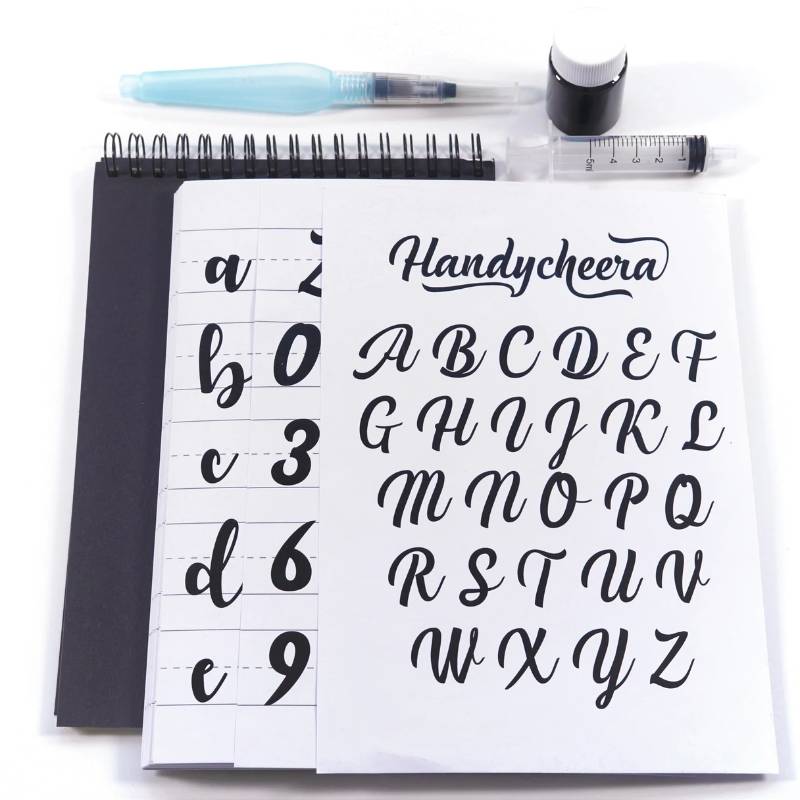 5ml 4 3 2 1
a
b
c
d
e
0
3
6
9
Handycheera
A B C D E F
G H I J K L
M N O P Q
R S T U V
W X Y Z